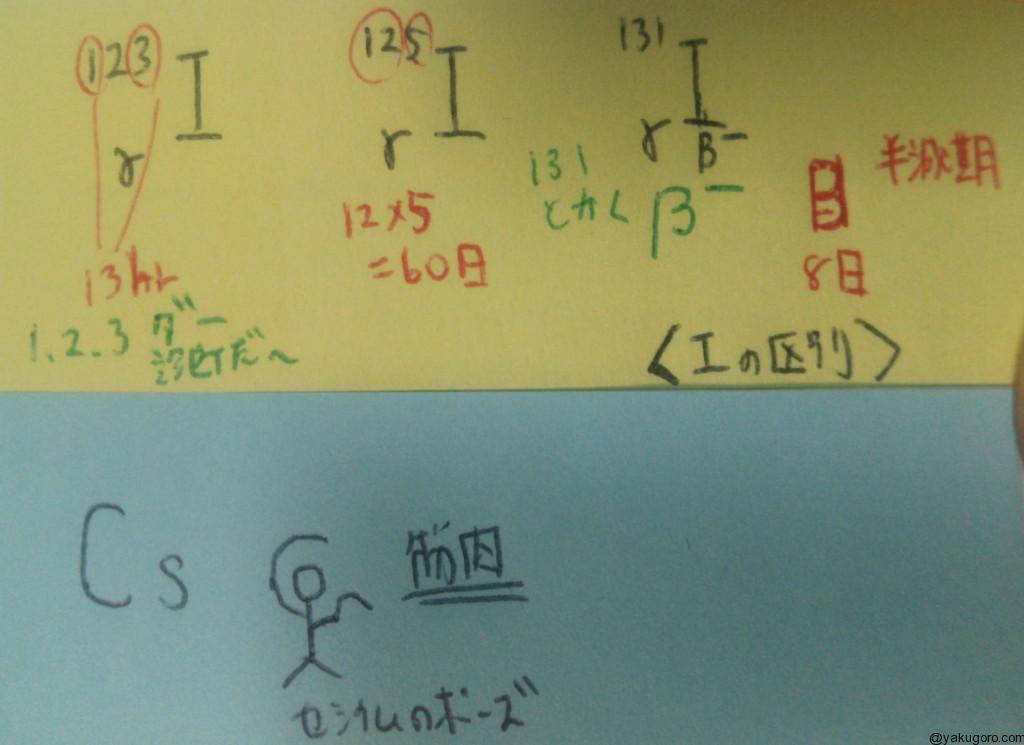 123I
γ
13hr
1.2.3 ダー
診断だ~
125I
γ
12×5
=60日
131I
γ β−
131
とかく β−
半減期
8日
<Iの区別>
Cs
筋肉
セシウムのポーズ
@yakugoro.com